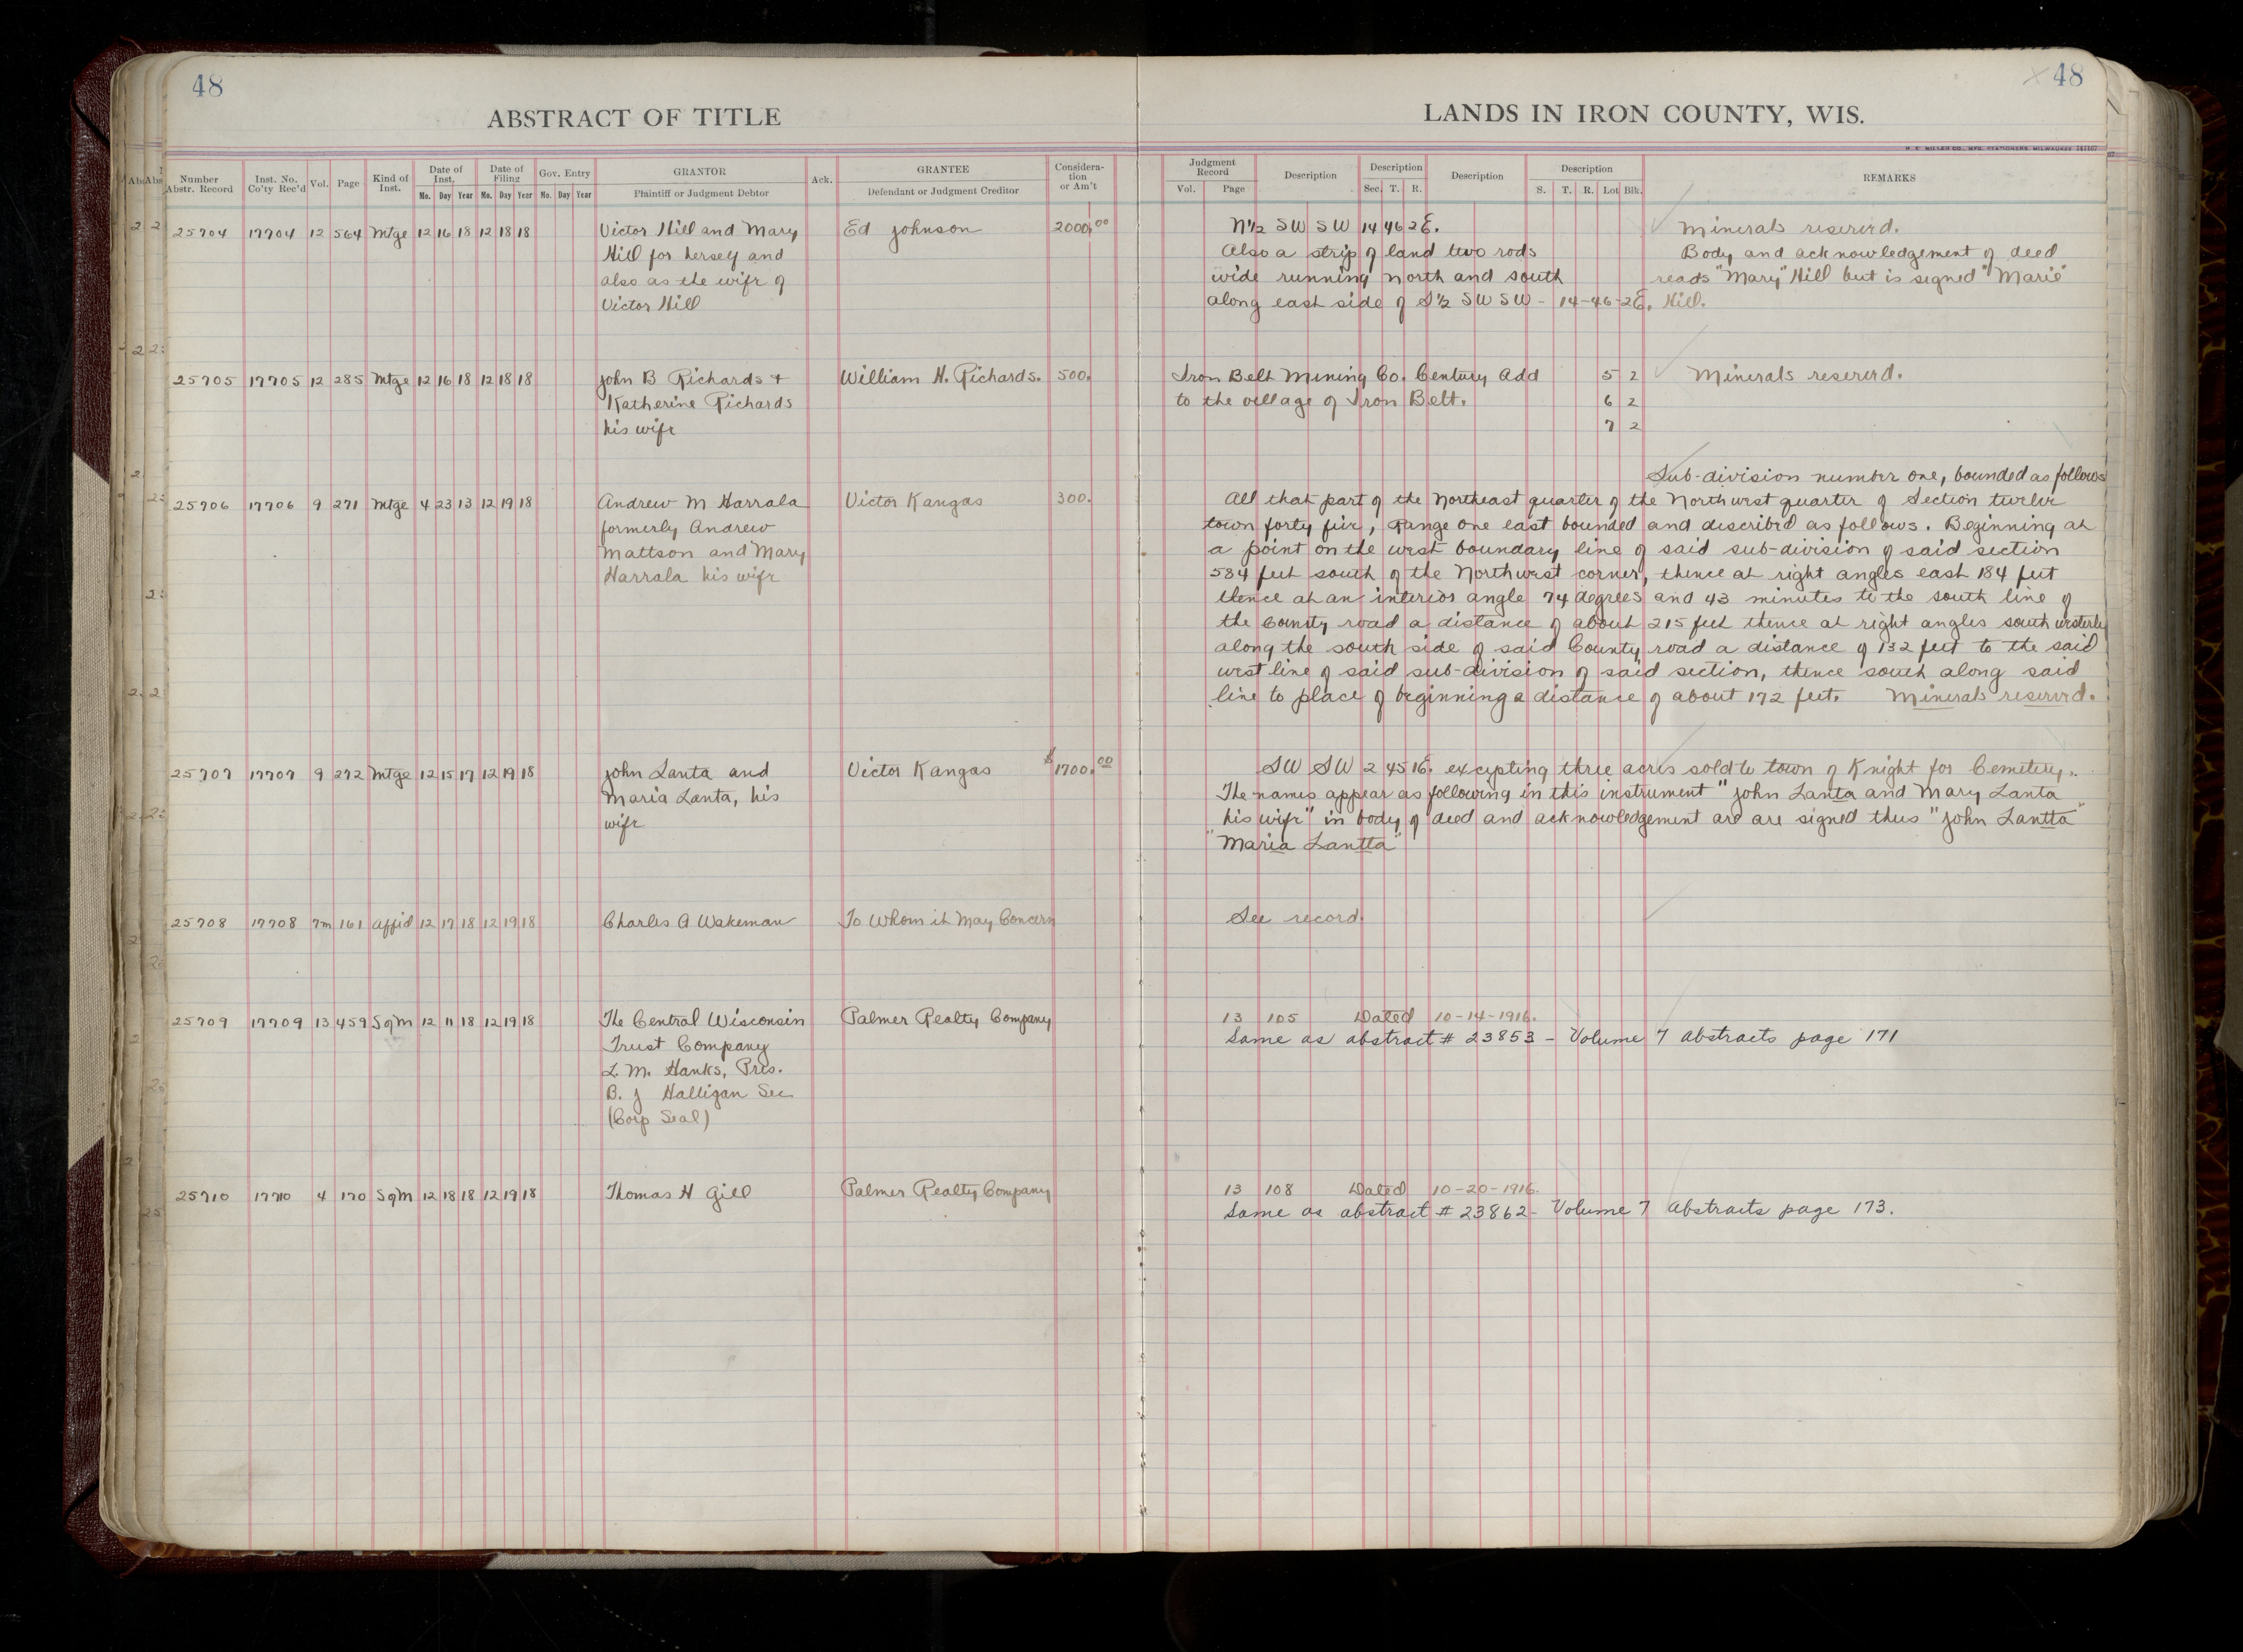 48
ABSTRACT OF TITLE
48
LANDS IN IRON COUNTY, WIS.
H. C. MILLER CO., MFG. STATIONERS, MILWAUKEE
Number Abstr. Record
Inst. No. Co'ty Rec'd
Vol.
Page
Kind of Inst.
Date of Inst.
Mo. Day Year
Date of Filing
Mo. Day Year
Gov. Entry
Mo. Day Year
GRANTOR
Plaintiff or Judgment Debtor
Ack.
GRANTEE
Defendant or Judgment Creditor
Considera-
tion
or Am't
Judgment Record
Vol. Page
Description
Description
Sec. T. R.
Description
Description
S. T. R. Lot Blk.
REMARKS
25704 17704 12 564 Mtge 12 16 18 12 18 18 Victor Hill and Mary Ed Johnson 2000.00 N½ SW SW 14 46 2E. Minerals reserved.
Hill for herself and Also a strip of land two rods Body and acknowledgement of deed
also as the wife of wide running north and south reads "Mary" Hill but is signed "Marie"
Victor Hill along east side of S½ SW SW - 14-46-2E. Hill.
25705 17705 12 285 Mtge 12 16 18 12 18 18 John B Richards + William H. Richards. 500. Iron Belt Mining Co. Century Add 5 2 Minerals reserved.
Katherine Richards to the village of Iron Belt. 6 2
his wife 7 2
Sub-division number one, bounded as follows
25706 17706 9 271 Mtge 4 23 13 12 19 18 Andrew M Harrala Victor Kangas 300. All that part of the Northeast quarter of the Northwest quarter of Section twelve
formerly Andrew town forty five, range one east bounded and described as follows. Beginning at
Mattson and Mary a point on the west boundary line of said sub-division of said section
Harrala his wife 584 feet south of the Northwest corner, thence at right angles east 184 feet
thence at an interior angle 74 degrees and 43 minutes to the south line of
the County road a distance of about 215 feet thence at right angles south westerly
along the south side of said County road a distance of 132 feet to the said
west line of said sub-division of said section, thence south along said
line to place of beginning a distance of about 172 feet. Minerals reserved.
25707 17707 9 272 Mtge 12 15 17 12 19 18 John Lanta and Victor Kangas $1700.00 SW SW 2 45 1E. excepting three acres sold to town of Knight for Cemetery.
Maria Lanta, his The names appear as following in this instrument "John Lanta and Mary Lanta
wife his wife" in body of deed and acknowledgement are are signed thus "John Lantta"
"Maria Lantta"
25708 17708 7m 161 Affid 12 17 18 12 19 18 Charles A Wakeman To Whom it May Concern See record.
25709 17709 13 459 SqM 12 11 18 12 19 18 The Central Wisconsin Palmer Realty Company 13 105 Dated 10-14-1916.
Trust Company Same as abstract # 23853 - Volume 7 Abstracts page 171
L. M. Hanks, Pres.
B. J Halligan Sec
(Corp Seal)
25710 17710 4 170 SqM 12 18 18 12 19 18 Thomas H Gill Palmer Realty Company 13 108 Dated 10-20-1916.
Same as abstract # 23862 - Volume 7 Abstracts page 173.